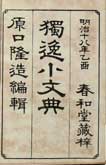 明治十八年乙酉
春和堂藏梓
獨逸小文典
原口隆造編輯